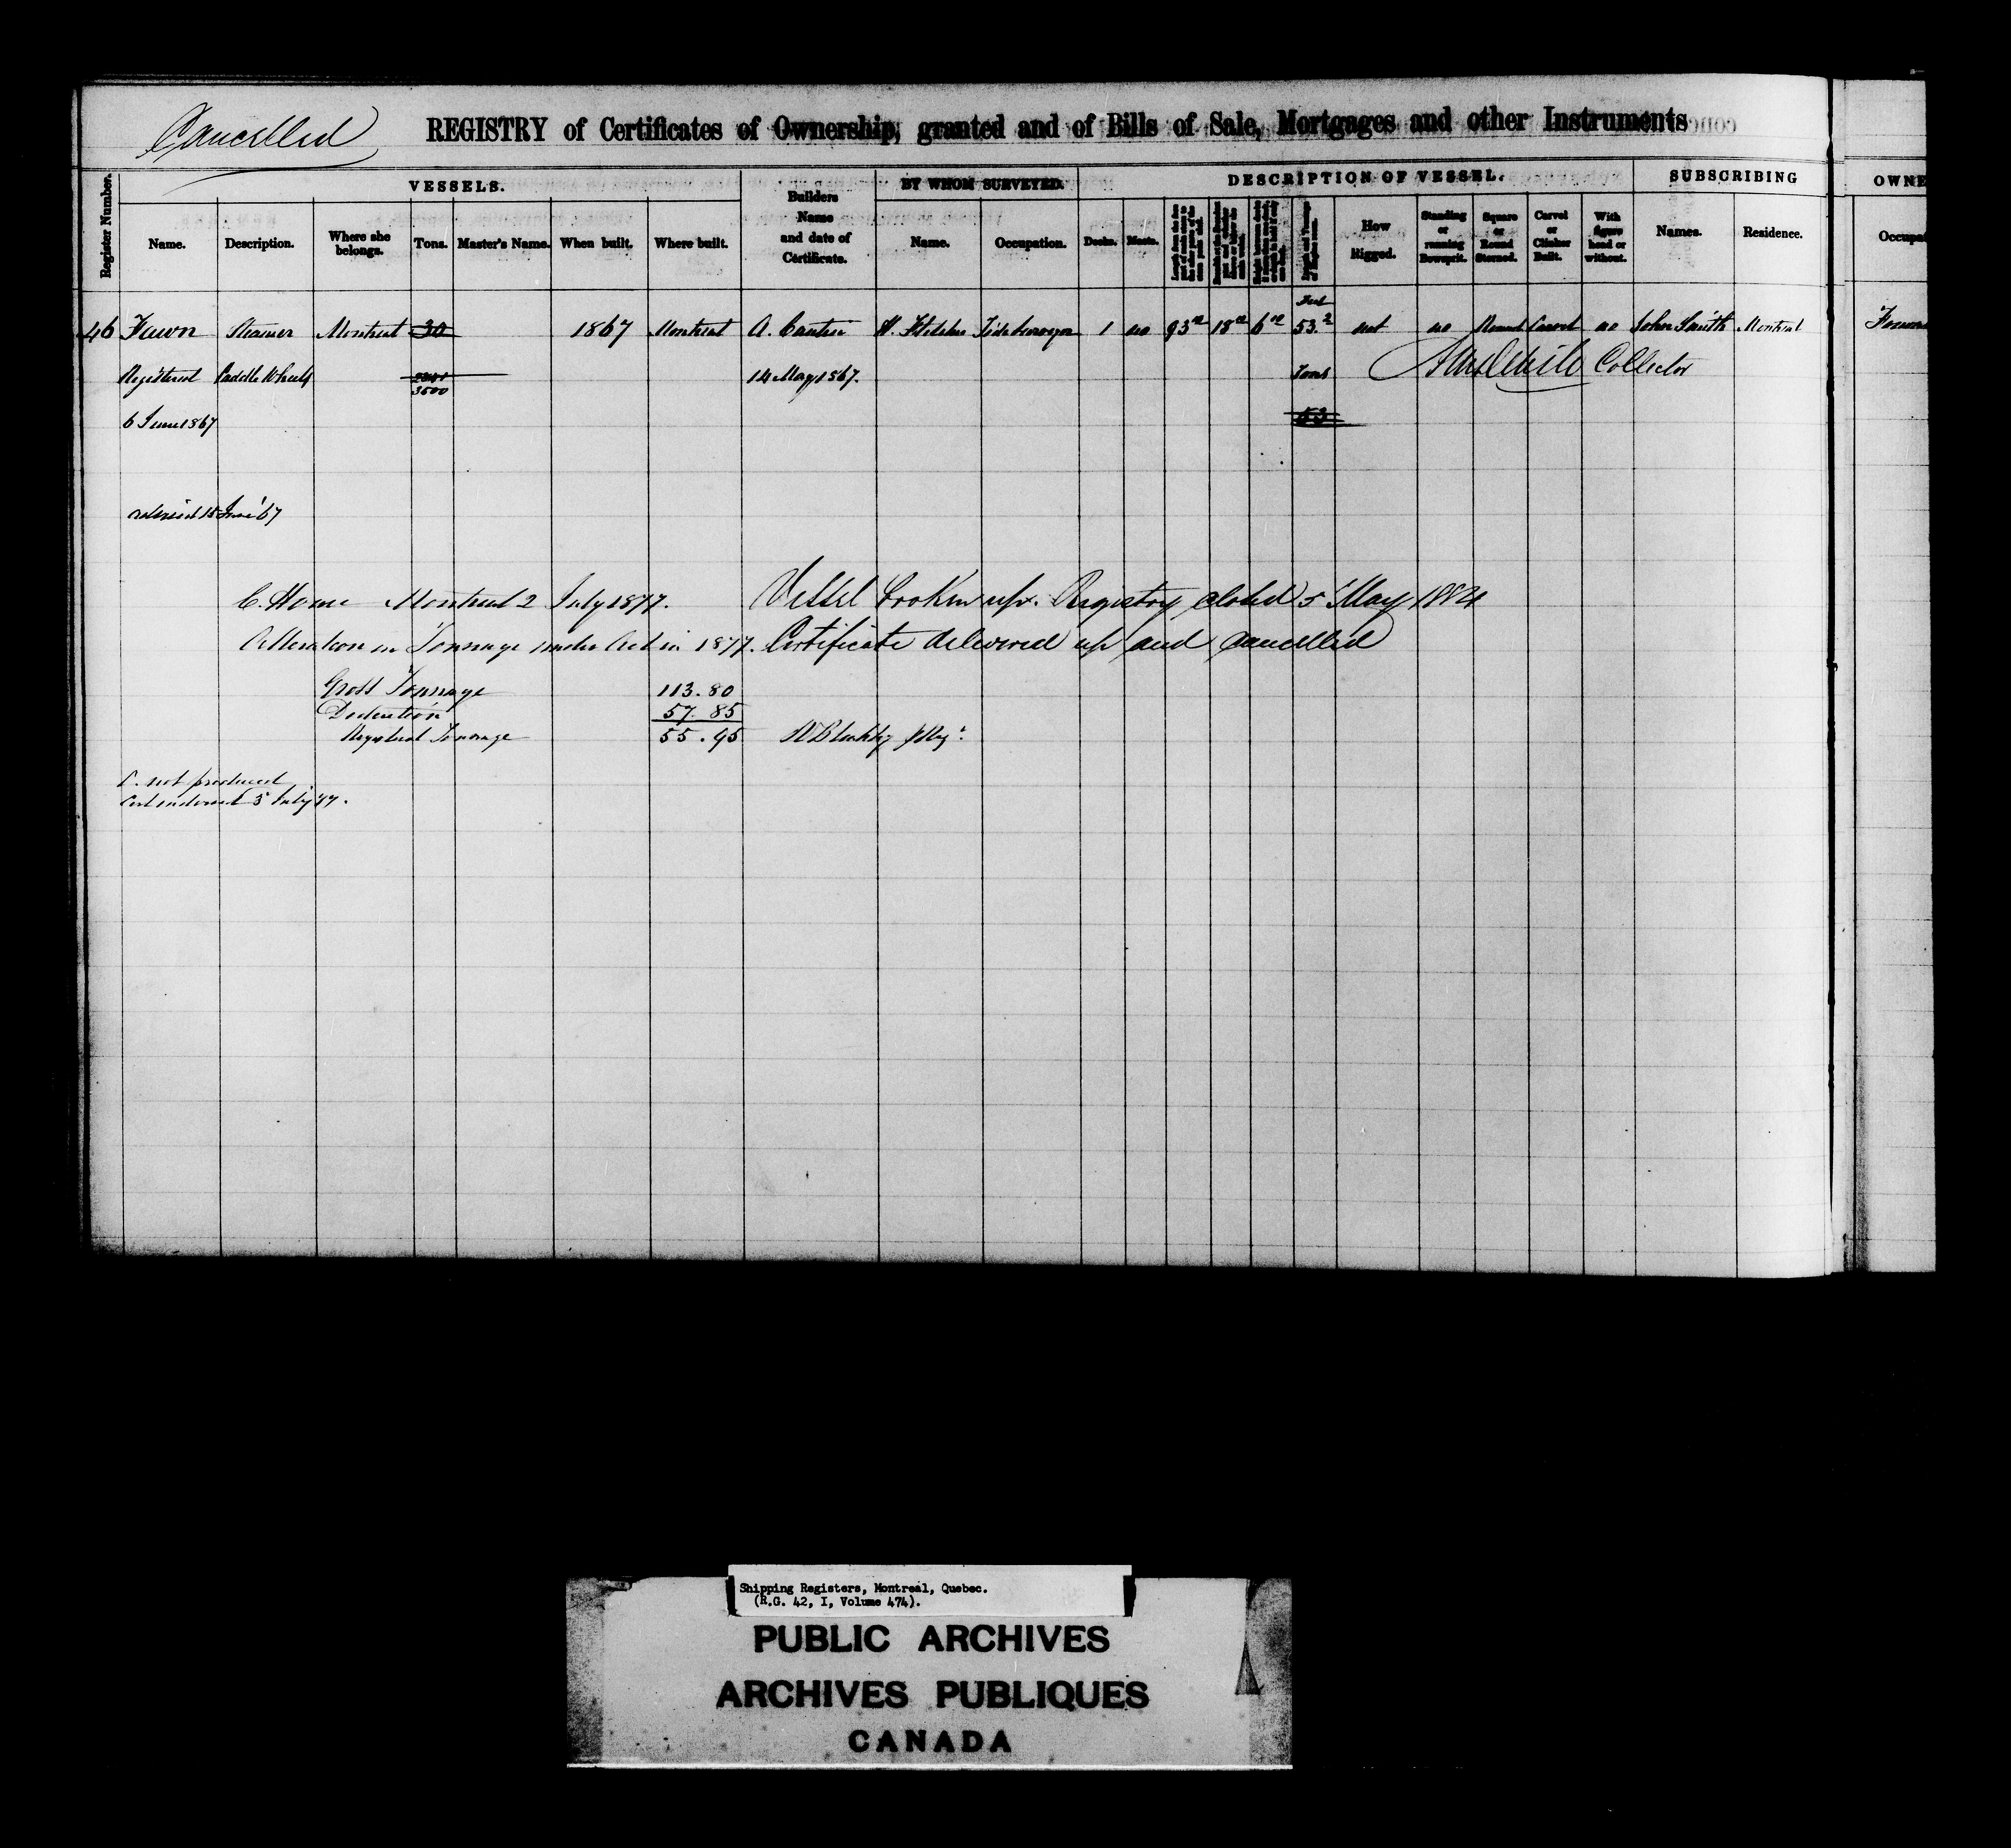 Cancelled
REGISTRY of Certificates of Ownership, granted and of Bills of Sale, Mortgages and other Instruments
VESSELS. BY WHOM SURVEYED. DESCRIPTION OF VESSEL. SUBSCRIBING OWNE
Register Number. Name. Description. Where she belongs. Tons. Master's Name. When built. Where built. Builders Name and date of Certificate. Name. Occupation. Decks. Masts. How Rigged. Standing or running Bowsprit. Square or Round Sterned. Carvel or Clinker Built. With figure head or without. Names. Residence. Occupat
Feet
46 Fawn Steamer Montreal 30 1867 Montreal A. Cantin H. Fletcher Tide Surveyor 1 no 93 18 6 53.2 not no Round Carvel no John Smith Montreal
Registered Paddle Wheels 3500 14 May 1867. Tons Collector
6 June 1867 53
15 June '67
C. Home Montreal 2 July 1877. Vessel broken up. Registry closed 5 May 1884
Alteration in Tonnage under Act in 1877. Certificate delivered up and cancelled
Gross Tonnage 113.80
Deduction 57.85
Registered Tonnage 55.95
C. not produced
Cert endorsed 5 July 77.
Shipping Registers, Montreal, Quebec.
(R.G. 42, I, Volume 474).
PUBLIC ARCHIVES
ARCHIVES PUBLIQUES
CANADA